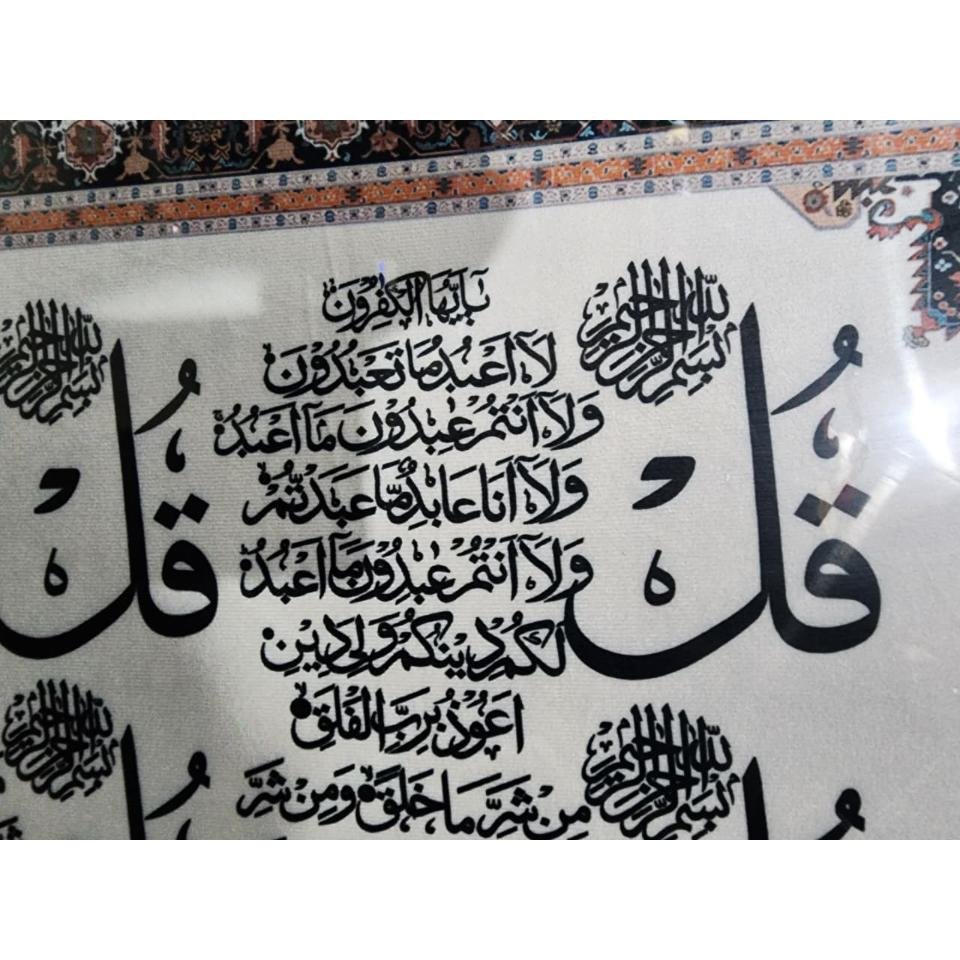 بسم الله الرحمن الرحيم
قُلْ
يٰٓاَيُّهَا الْكٰفِرُوْنَ
لَآ اَعْبُدُ مَا تَعْبُدُوْنَ
وَلَآ اَنْتُمْ عٰبِدُوْنَ مَآ اَعْبُدُ
وَلَآ اَنَا عَابِدٌ مَّا عَبَدْتُّمْ
وَلَآ اَنْتُمْ عٰبِدُوْنَ مَآ اَعْبُدُ
لَكُمْ دِيْنُكُمْ وَلِيَ دِيْنِ
بسم الله الرحمن الرحيم
قُلْ
بسم الله الرحمن الرحيم
اَعُوْذُ بِرَبِّ الْفَلَقِ
مِنْ شَرِّ مَا خَلَقَ وَمِنْ شَرِّ
بسم الله الرحمن الرحيم